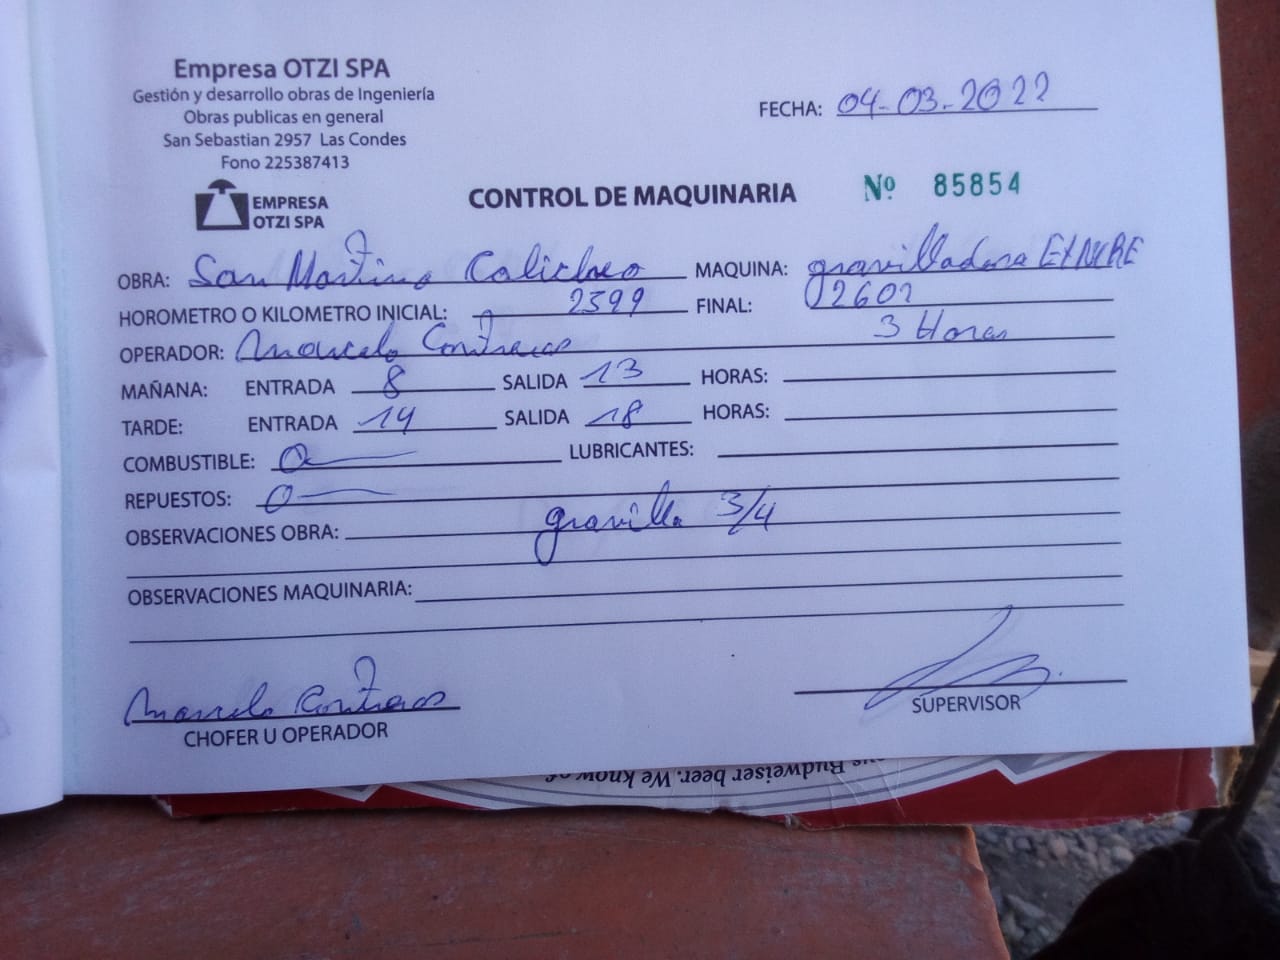 Empresa OTZI SPA
Gestión y desarrollo obras de Ingeniería
Obras publicas en general
San Sebastian 2957 Las Condes
Fono 225387413
EMPRESA
OTZI SPA
FECHA: 04-03-2022
CONTROL DE MAQUINARIA
Nº 85854
OBRA: San Martino MAQUINA: gravilladora
HOROMETRO O KILOMETRO INICIAL: 2599 FINAL: 2602
3 Horas
OPERADOR: Marcelo Contreras
MAÑANA: ENTRADA 8 SALIDA 13 HORAS:
TARDE: ENTRADA 14 SALIDA 18 HORAS:
COMBUSTIBLE: 0 LUBRICANTES:
REPUESTOS: 0
OBSERVACIONES OBRA: gravilla 3/4
OBSERVACIONES MAQUINARIA:
Marcelo Contreras
CHOFER U OPERADOR
SUPERVISOR
Budweiser beer. We know of